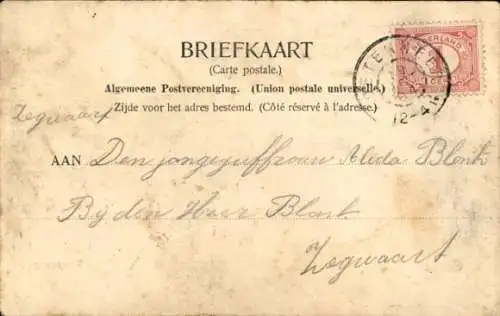 BRIEFKAART
(Carte postale.)
Algemeene Postvereeniging. (Union postale universelle.)
Zijde voor het adres bestemd. (Côté réservé à l'adresse.)
Zegwaart
AAN Den jongejuffrouw Aleda Blonk
Bij den Heer Blonk
Zegwaart
NEDERLAND
12-4